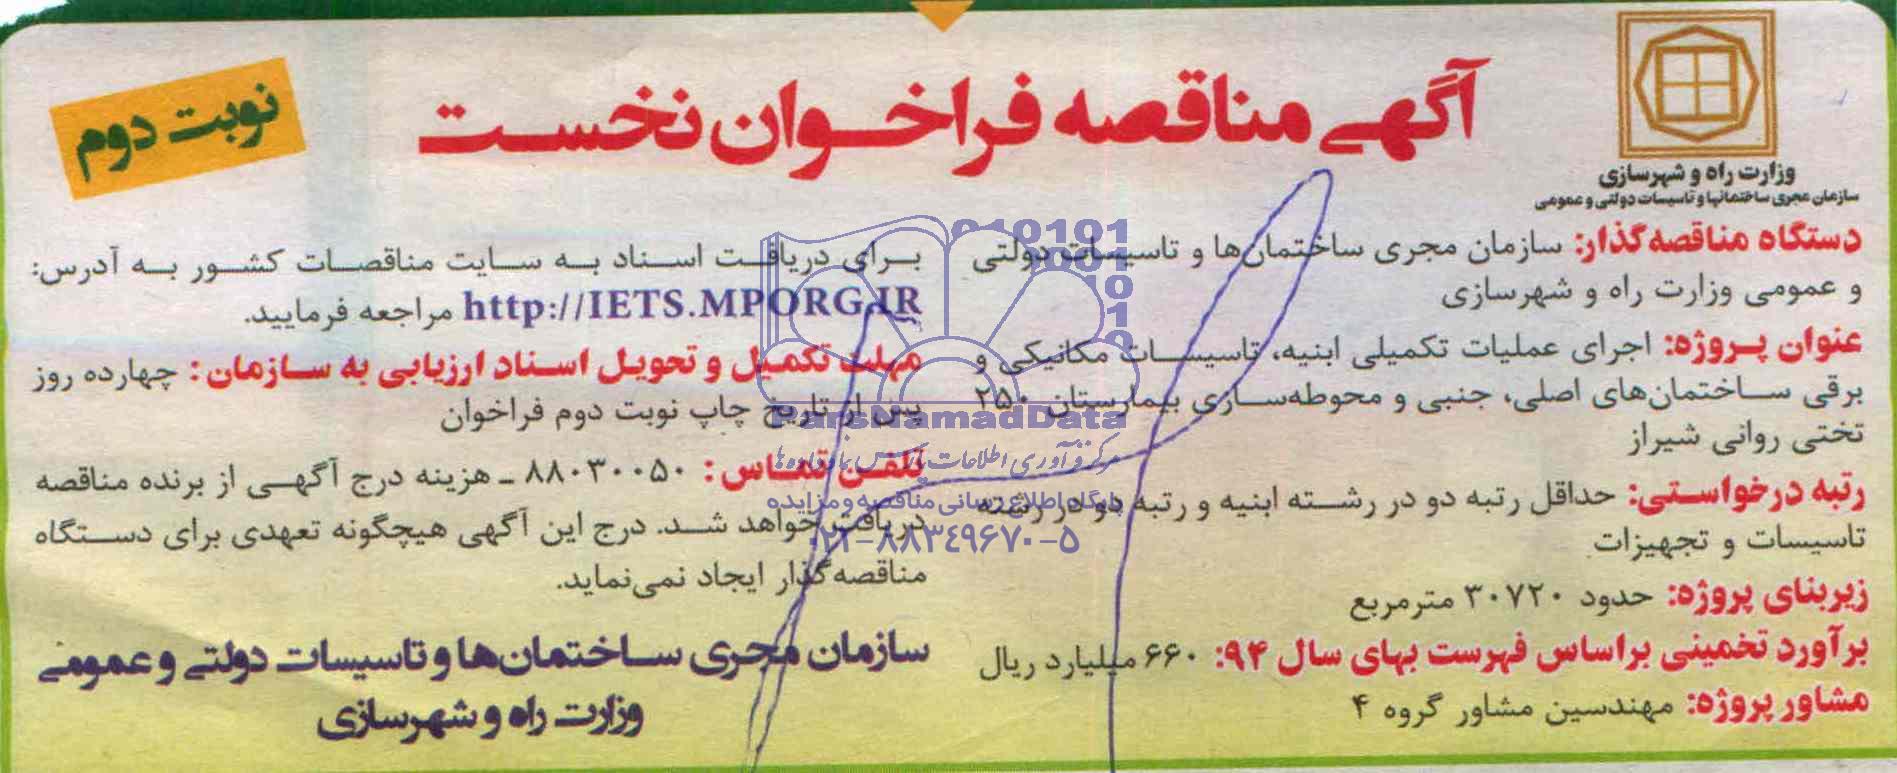 وزارت راه و شهرسازی
سازمان مجری ساختمانها و تاسیسات دولتی و عمومی
آگهی مناقصه فراخوان نخست
نوبت دوم
دستگاه مناقصه‌گذار: سازمان مجری ساختمان‌ها و تاسیسات دولتی
و عمومی وزارت راه و شهرسازی
عنوان پروژه: اجرای عملیات تکمیلی ابنیه، تاسیسات مکانیکی و
برقی ساختمان‌های اصلی، جنبی و محوطه‌سازی بیمارستان ۲۵۰
تختی روانی شیراز
رتبه درخواستی: حداقل رتبه دو در رشته ابنیه و رتبه دو در رشته
تاسیسات و تجهیزات
زیربنای پروژه: حدود ۳۰۷۲۰ مترمربع
برآورد تخمینی براساس فهرست بهای سال ۹۴: ۶۶۰ میلیارد ریال
مشاور پروژه: مهندسین مشاور گروه ۴
برای دریافت اسناد به سایت مناقصات کشور به آدرس:
http://IETS.MPORG.IR مراجعه فرمایید.
مهلت تکمیل و تحویل اسناد ارزیابی به سازمان: چهارده روز
پس از تاریخ چاپ نوبت دوم فراخوان
تلفن تماس: ۸۸۰۳۰۰۵۰ ـ هزینه درج آگهی از برنده مناقصه
دریافت خواهد شد. درج این آگهی هیچگونه تعهدی برای دستگاه
مناقصه‌گذار ایجاد نمی‌نماید.
سازمان مجری ساختمان‌ها و تاسیسات دولتی و عمومی
وزارت راه و شهرسازی
ParsNamadData
مرکز فرآوری اطلاعات پارس نماد داده‌ها
پایگاه اطلاع رسانی مناقصه و مزایده
۰۲۱-۸۸۳۴۹۶۷۰-۵